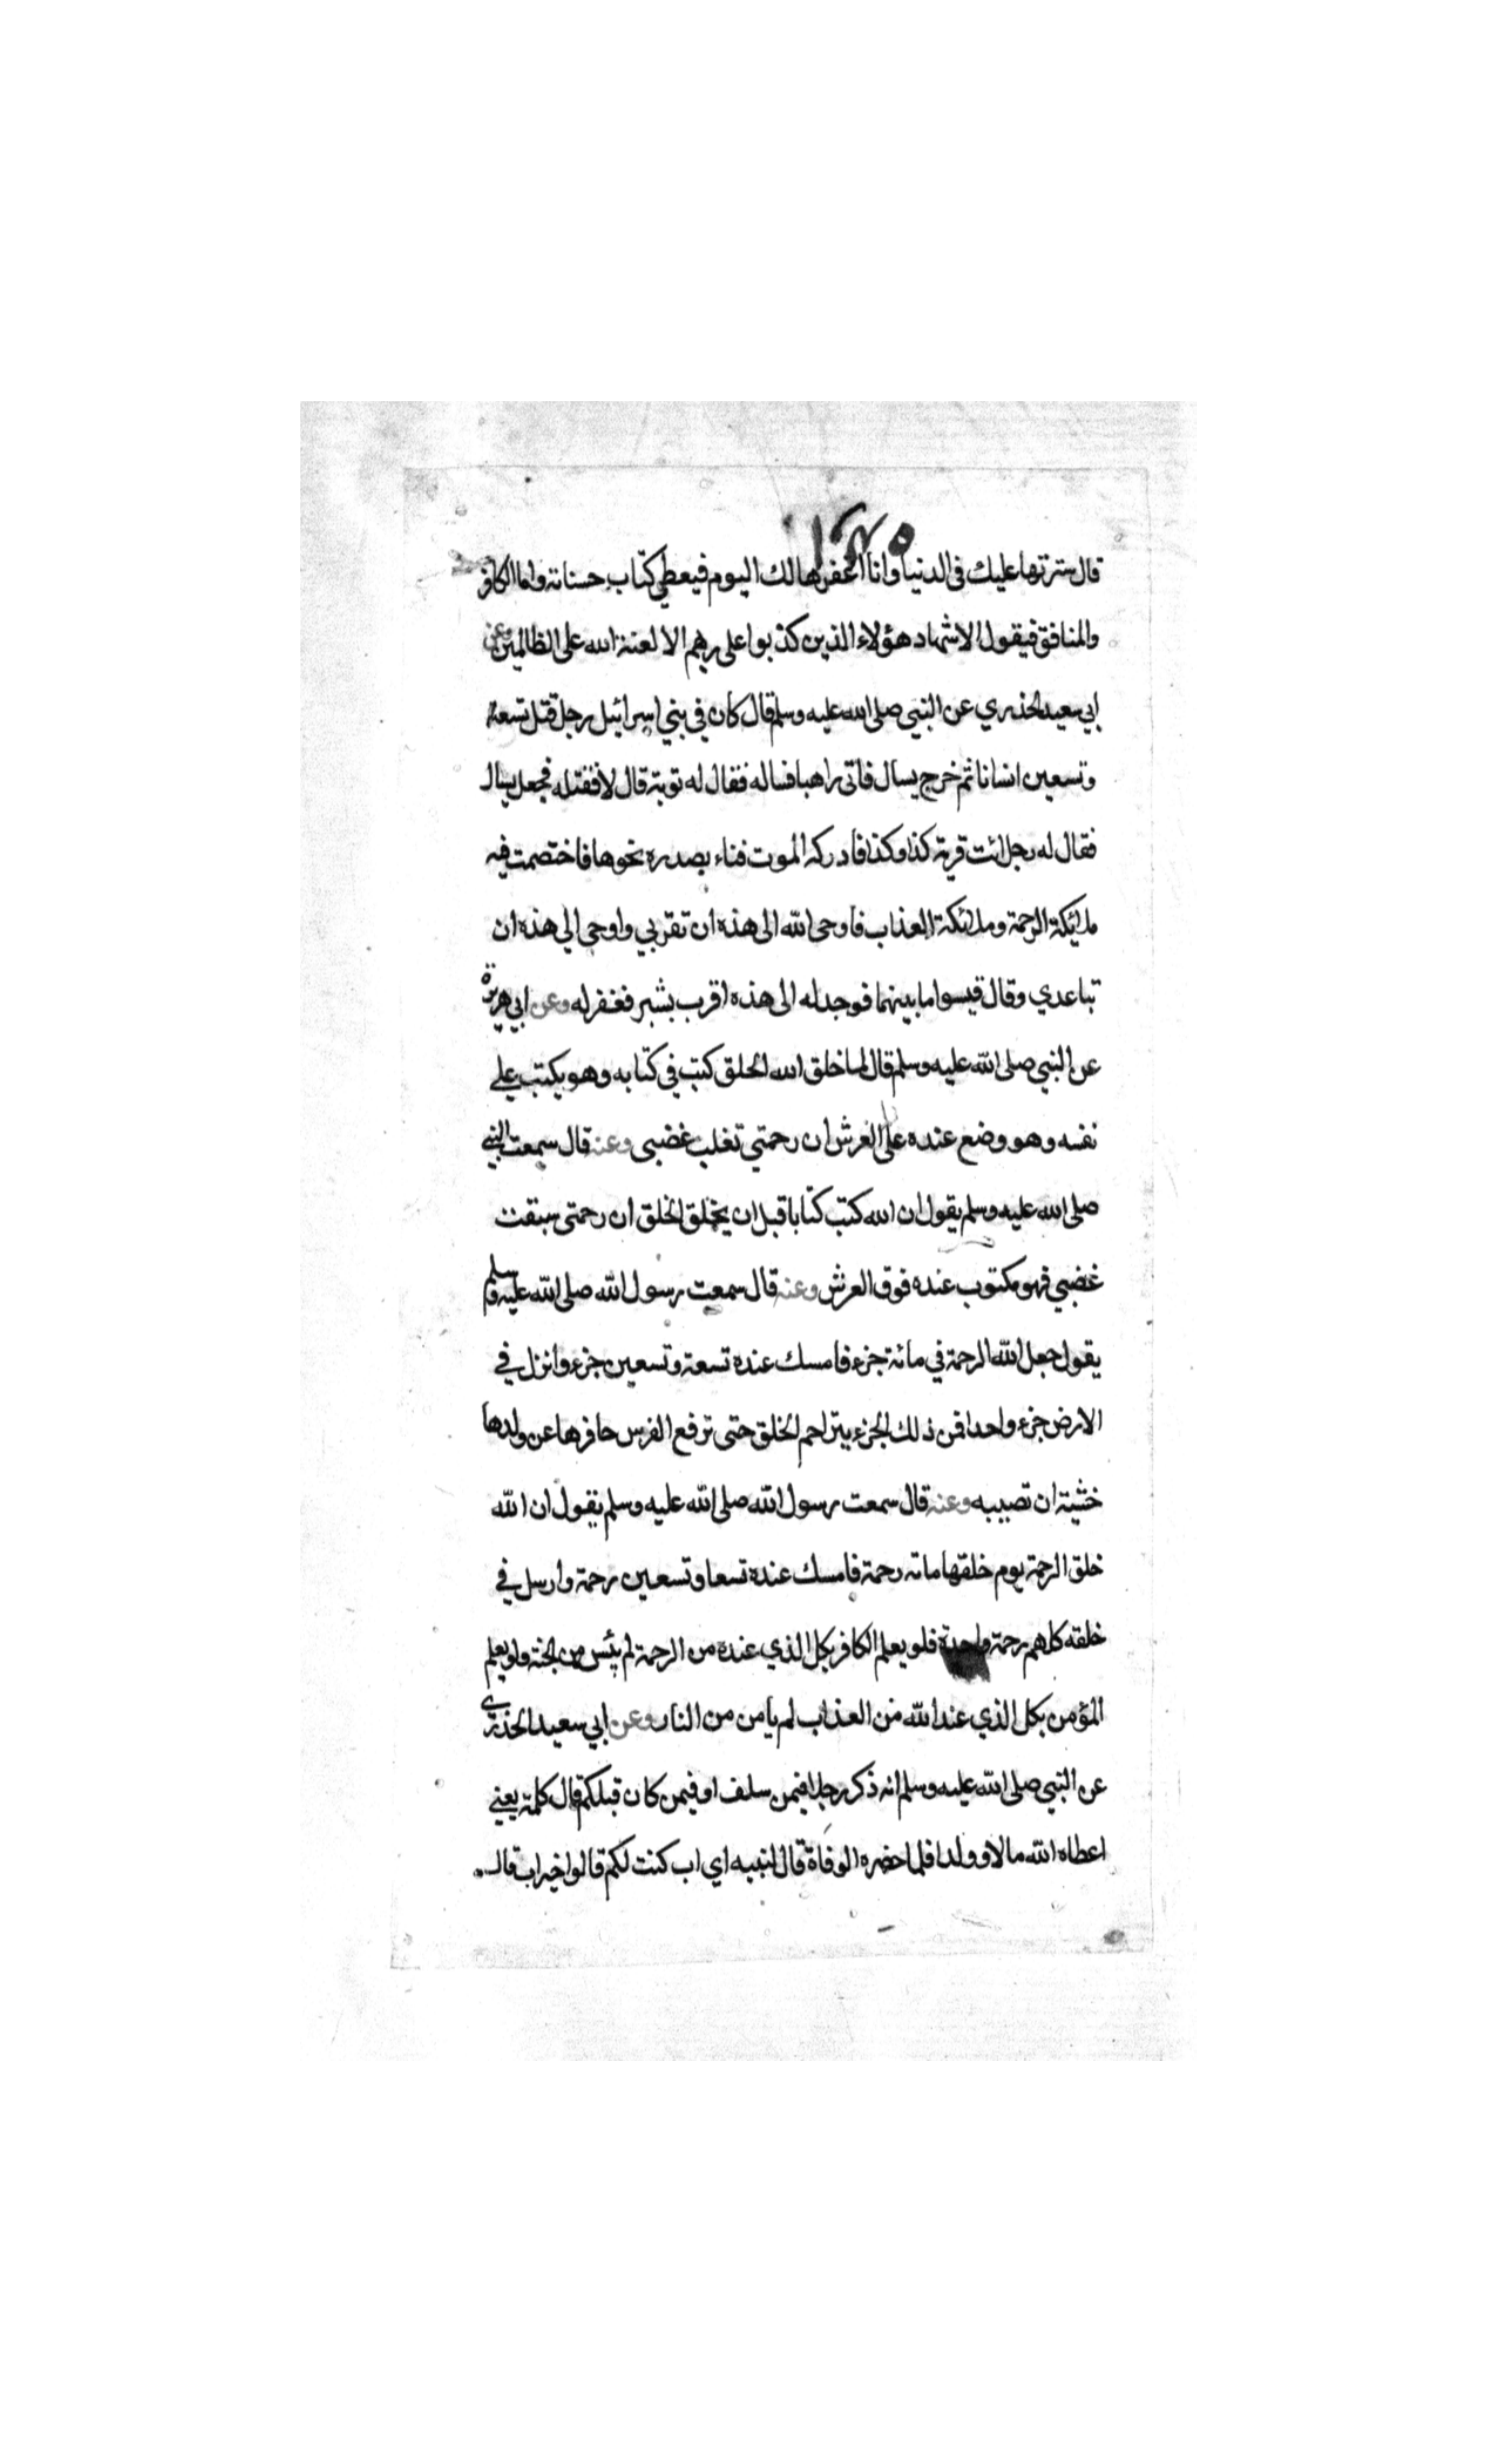 قال سترتها عليك فى الدنيا وانا اغفرها لك اليوم فيعطي كتاب حسناته واما الكافر
والمنافق فيقول الاشهاد هؤلاء الذين كذبوا على ربهم الا لعنة الله على الظالمين وعن
ابي سعيد الخذري عن النبي صلى الله عليه وسلم قال كان في بني اسرائيل رجل قتل تسعة
وتسعين انسانا ثم خرج يسال فاتى راهبا فساله فقال له توبة قال لا فقتله فجعل يسال
فقال له رجل ائت قرية كذا وكذا فادركه الموت فناء بصدره نحوها فاختصمت فيه
ملائكة الرحمة وملائكة العذاب فاوحى الله الى هذه ان تقربي واوحى الي هذه ان
تباعدي وقال قيسوا ما بينهما فوجد له الى هذه اقرب بشبر فغفر له وعن ابي هريرة
عن النبي صلى الله عليه وسلم قال لما خلق الله الخلق كتب في كتابه وهو يكتب علي
نفسه وهو وضع عنده على العرش ان رحمتي تغلب غضبى وعنه قال سمعت النبي
صلى الله عليه وسلم يقول ان الله كتب كتابا قبل ان يخلق الخلق ان رحمتى سبقت
غضبي فهو مكتوب عنده فوق العرش وعنه قال سمعت رسول الله صلى الله عليه وسلم
يقول جعل الله الرحمة في مائة جزء فامسك عنده تسعة وتسعين جزء وانزل في
الارض جزء واحدا فمن ذلك الجزء يتراحم الخلق حتى ترفع الفرس حافرها عن ولدها
خشية ان تصيبه وعنه قال سمعت رسول الله صلى الله عليه وسلم يقول ان الله
خلق الرحمة يوم خلقها مائه رحمة فامسك عنده تسعا وتسعين رحمة وارسل في
خلقه كلهم رحمة واحدة فلو يعلم الكافر بكل الذي عنده من الرحمة لم يئس من الجنة ولو يعلم
المؤمن بكل الذي عند الله من العذاب لم يامن من النار وعن ابي سعيد الخذري
عن النبي صلى الله عليه وسلم انه ذكر رجلا فيمن سلف او فيمن كان قبلكم قال كلمة يعني
اعطاه الله مالا وولدا فلما حضره الوفاة قال لبنيه اي اب كنت لكم قالوا خير اب قال